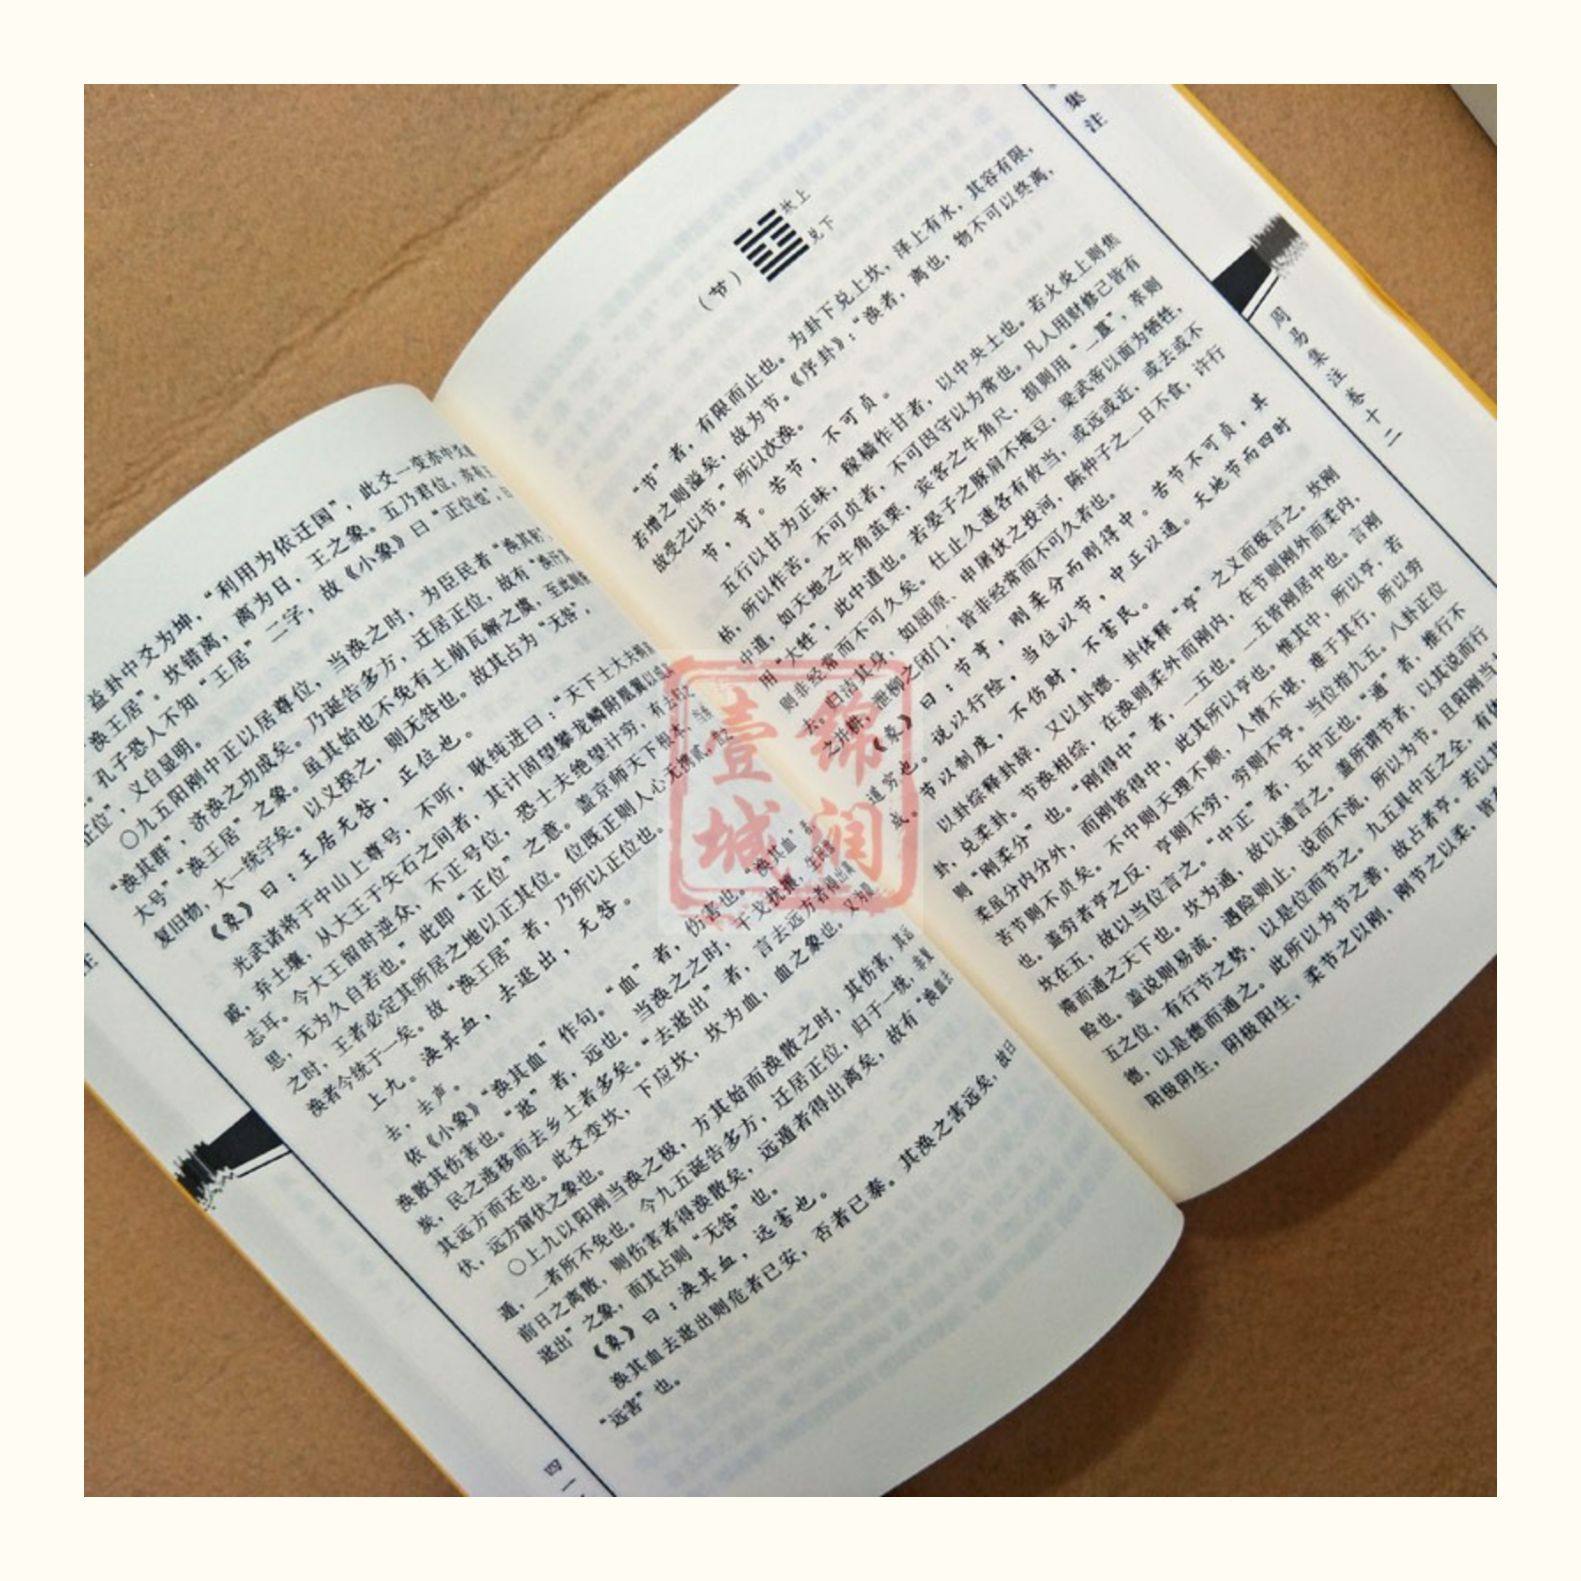 益卦中爻为坤，“利用为依迁国”，此爻一变亦中爻
“涣王居”。坎错离，离为日，王之象。五乃君位，亦有
孔子恐人不知“王居”二字，故《小象》曰“正位也”，
正位”，义自显明。
○九五阳刚中正以居尊位，当涣之时，为臣民者“涣其躬
“涣其群”，济涣之功成矣。乃诞告多方，迁居正位，故有“涣汗其
大号”“涣王居”之象。虽其始也不免有土崩瓦解之虞，至此则
复旧物，大一统宇矣。以义揆之，则无咎也。故其占为“无咎”。
《象》曰：王居无咎，正位也。
光武诸将于中山上尊号，不听，耿纯进曰：“天下士大夫捐
戚，弃土壤，从大王于矢石之间者，其计固望攀龙鳞附凤翼以成
志耳。今大王留时逆众，不正号位，恐士夫绝望计穷，有去
思，无为久自苦也。”此即“正位”之意。盖京师天下根本，当
之时，王者必定其所居之地以正其位。位既正则人心无携贰，
涣者今统于一矣。故“涣王居”者，乃所以正位也。
上九。涣其血，去逖出，无咎。
去，去声。
依《小象》“涣其血”作句。“血”者，伤害也。“涣其血”者
涣散其伤害也。“逖”者，远也。当涣之之时，干戈扰攘，生民涂
炭，民之逃移而去乡土者多矣。“去逖出”者，言去远方者得出离
其远方而还也。此爻变坎，下应坎，坎为血，血之象也。又为隐
伏，远方窜伏之象也。
○上九以阳刚当涣之极，方其始而涣散之时，其伤害，其远
遁，二者所不免也。今九五诞告多方，迁居正位，归于一统，非复
前日之离散，则伤害者得涣散矣，远遁者得出离矣，故有“涣血去
逖出”之象，而其占则“无咎”也。
《象》曰：涣其血，远害也。
涣其血去逖出则危者已安，否者已泰。其涣之害远矣，故曰
“远害”也。
集注
周易集注卷十二
（节）
坎上
兑下
“节”者，有限而止也。为卦下兑上坎，泽上有水，其容有限，
若增之则溢矣，故为节。《序卦》：“涣者，离也，物不可以终离，
故受之以节。”所以次涣。
节，亨。苦节，不可贞。
五行以甘为正味，稼穑作甘者，以中央土也。若火炎上则焦
枯，所以作苦。不可贞者，不可因守以为常也。凡人用财修己皆有
中道，如天地之牛角茧栗，宾客之牛角尺，损则用“二簋”，萃则
用“大牲”，此中道也。若晏子之豚肩不掩豆，梁武帝以面为牺牲，
则非经常而不可久矣。仕止久速各有攸当，或远或近，或去或不
去。归洁其身，如屈原、申屠狄之投河，陈仲子之三日不食，许行
之并耕，泄柳之闭门，皆非经常而不可久者也。
《彖》曰：节亨，刚柔分而刚得中。苦节不可贞，其
道穷也。说以行险，当位以节，中正以通。天地节而四时
成。节以制度，不伤财，不害民。
以卦综释卦辞，又以卦德、卦体释“亨”之义而极言之。坎刚
卦，兑柔卦。节涣相综，在涣则柔外而刚内，在节则刚外而柔内，
则“刚柔分”也。“刚得中”者，二五也。二五皆刚居中也。言刚
柔虽分内分外，而刚皆得中，此其所以亨也。惟其中，所以亨，若
苦节则不贞矣。不中则天理不顺，人情不堪，难于其行，所以穷
也。盖穷者亨之反，亨则不穷，穷则不亨。当位指九五。八卦正位
坎在五，故以当位言之。“中正”者，五中正也。“通”者，推行不
滞而通之天下也。坎为通，故以通言之。盖所谓节者，以其说而行
险也。盖说则易流，遇险则止，说而不流，所以为节。且阳刚当
五之位，有行节之势，以是位而节之。九五具中正之全，有
德，以是德而通之。此所以为节之善，故占者亨。若以
阳极阴生，阴极阳生，柔节之以刚，刚节之以柔，皆
锦润
壹城